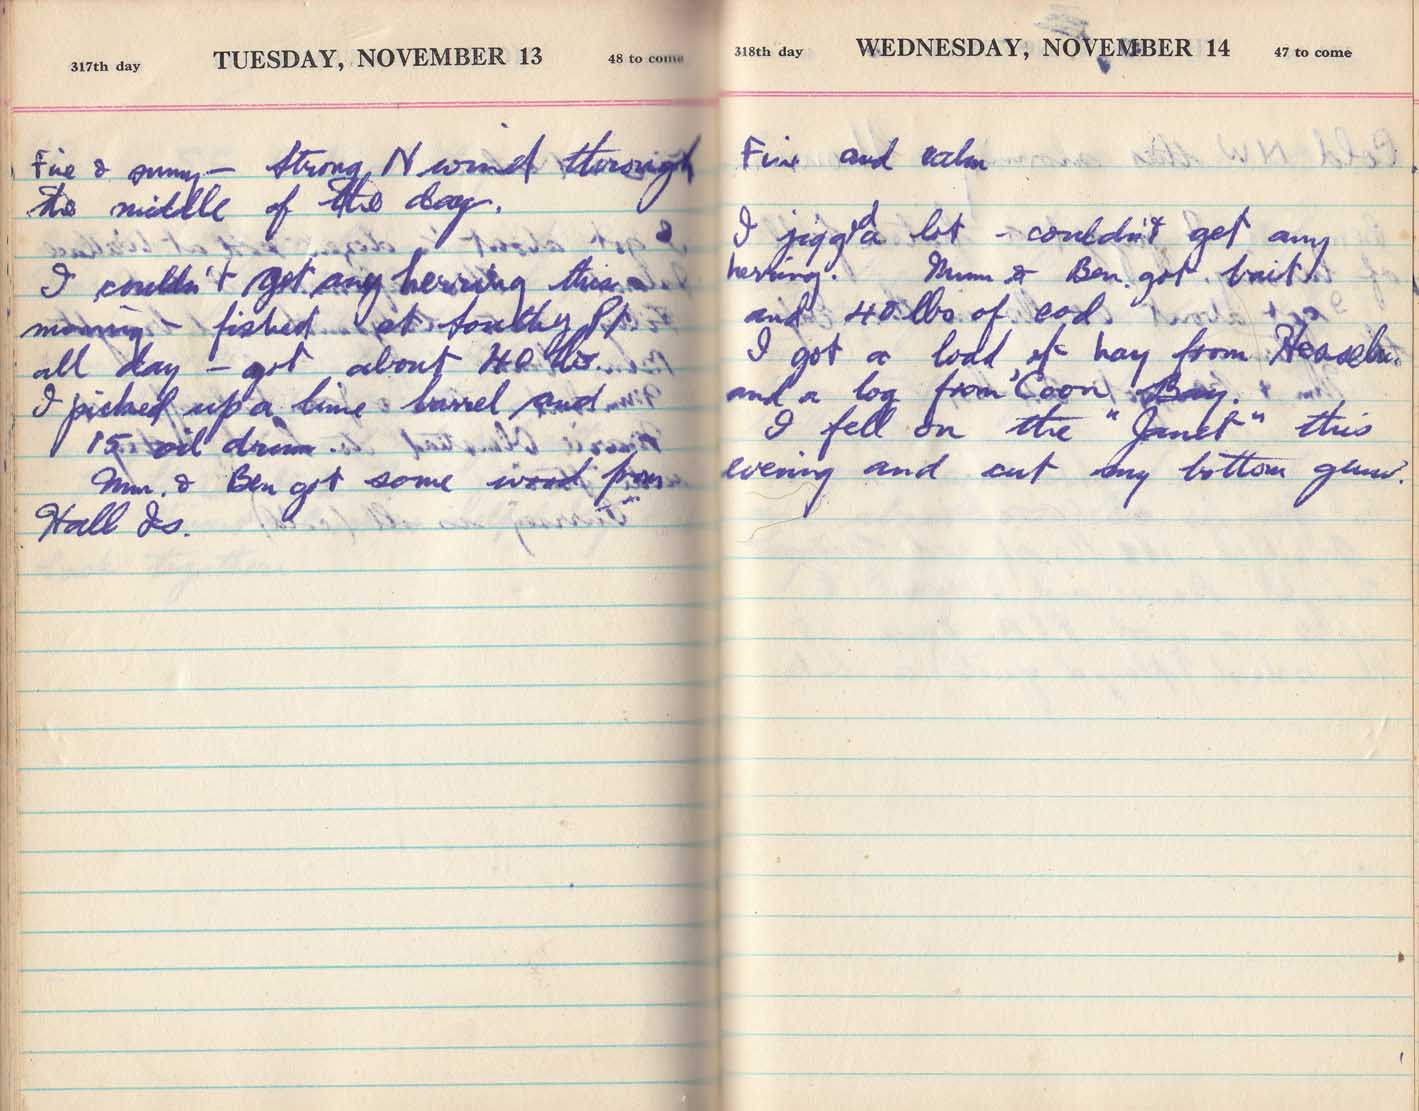 317th day TUESDAY, NOVEMBER 13 48 to come
Fine & sunny — Strong N wind thorough
the middle of the day.
I couldn't get any herring this
morning — fished at Southey Pt
all day — got about 40 lbs.
I picked up a lime barrel and
15 oil drum.
Mum. & Ben got some wood from
Hall Is.
318th day WEDNESDAY, NOVEMBER 14 47 to come
Fine and calm
I jigg'd a lot - couldn't get any
herring. Mum & Ben. got bait
and 40 lbs of cod
I got a load of hay from
and a log from 'Coon Bay.
I fell on the "Janet" this
evening and cut my bottom